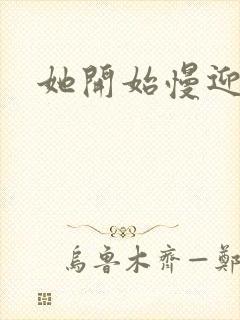 她開始慢迎
烏魯木齊—鄭